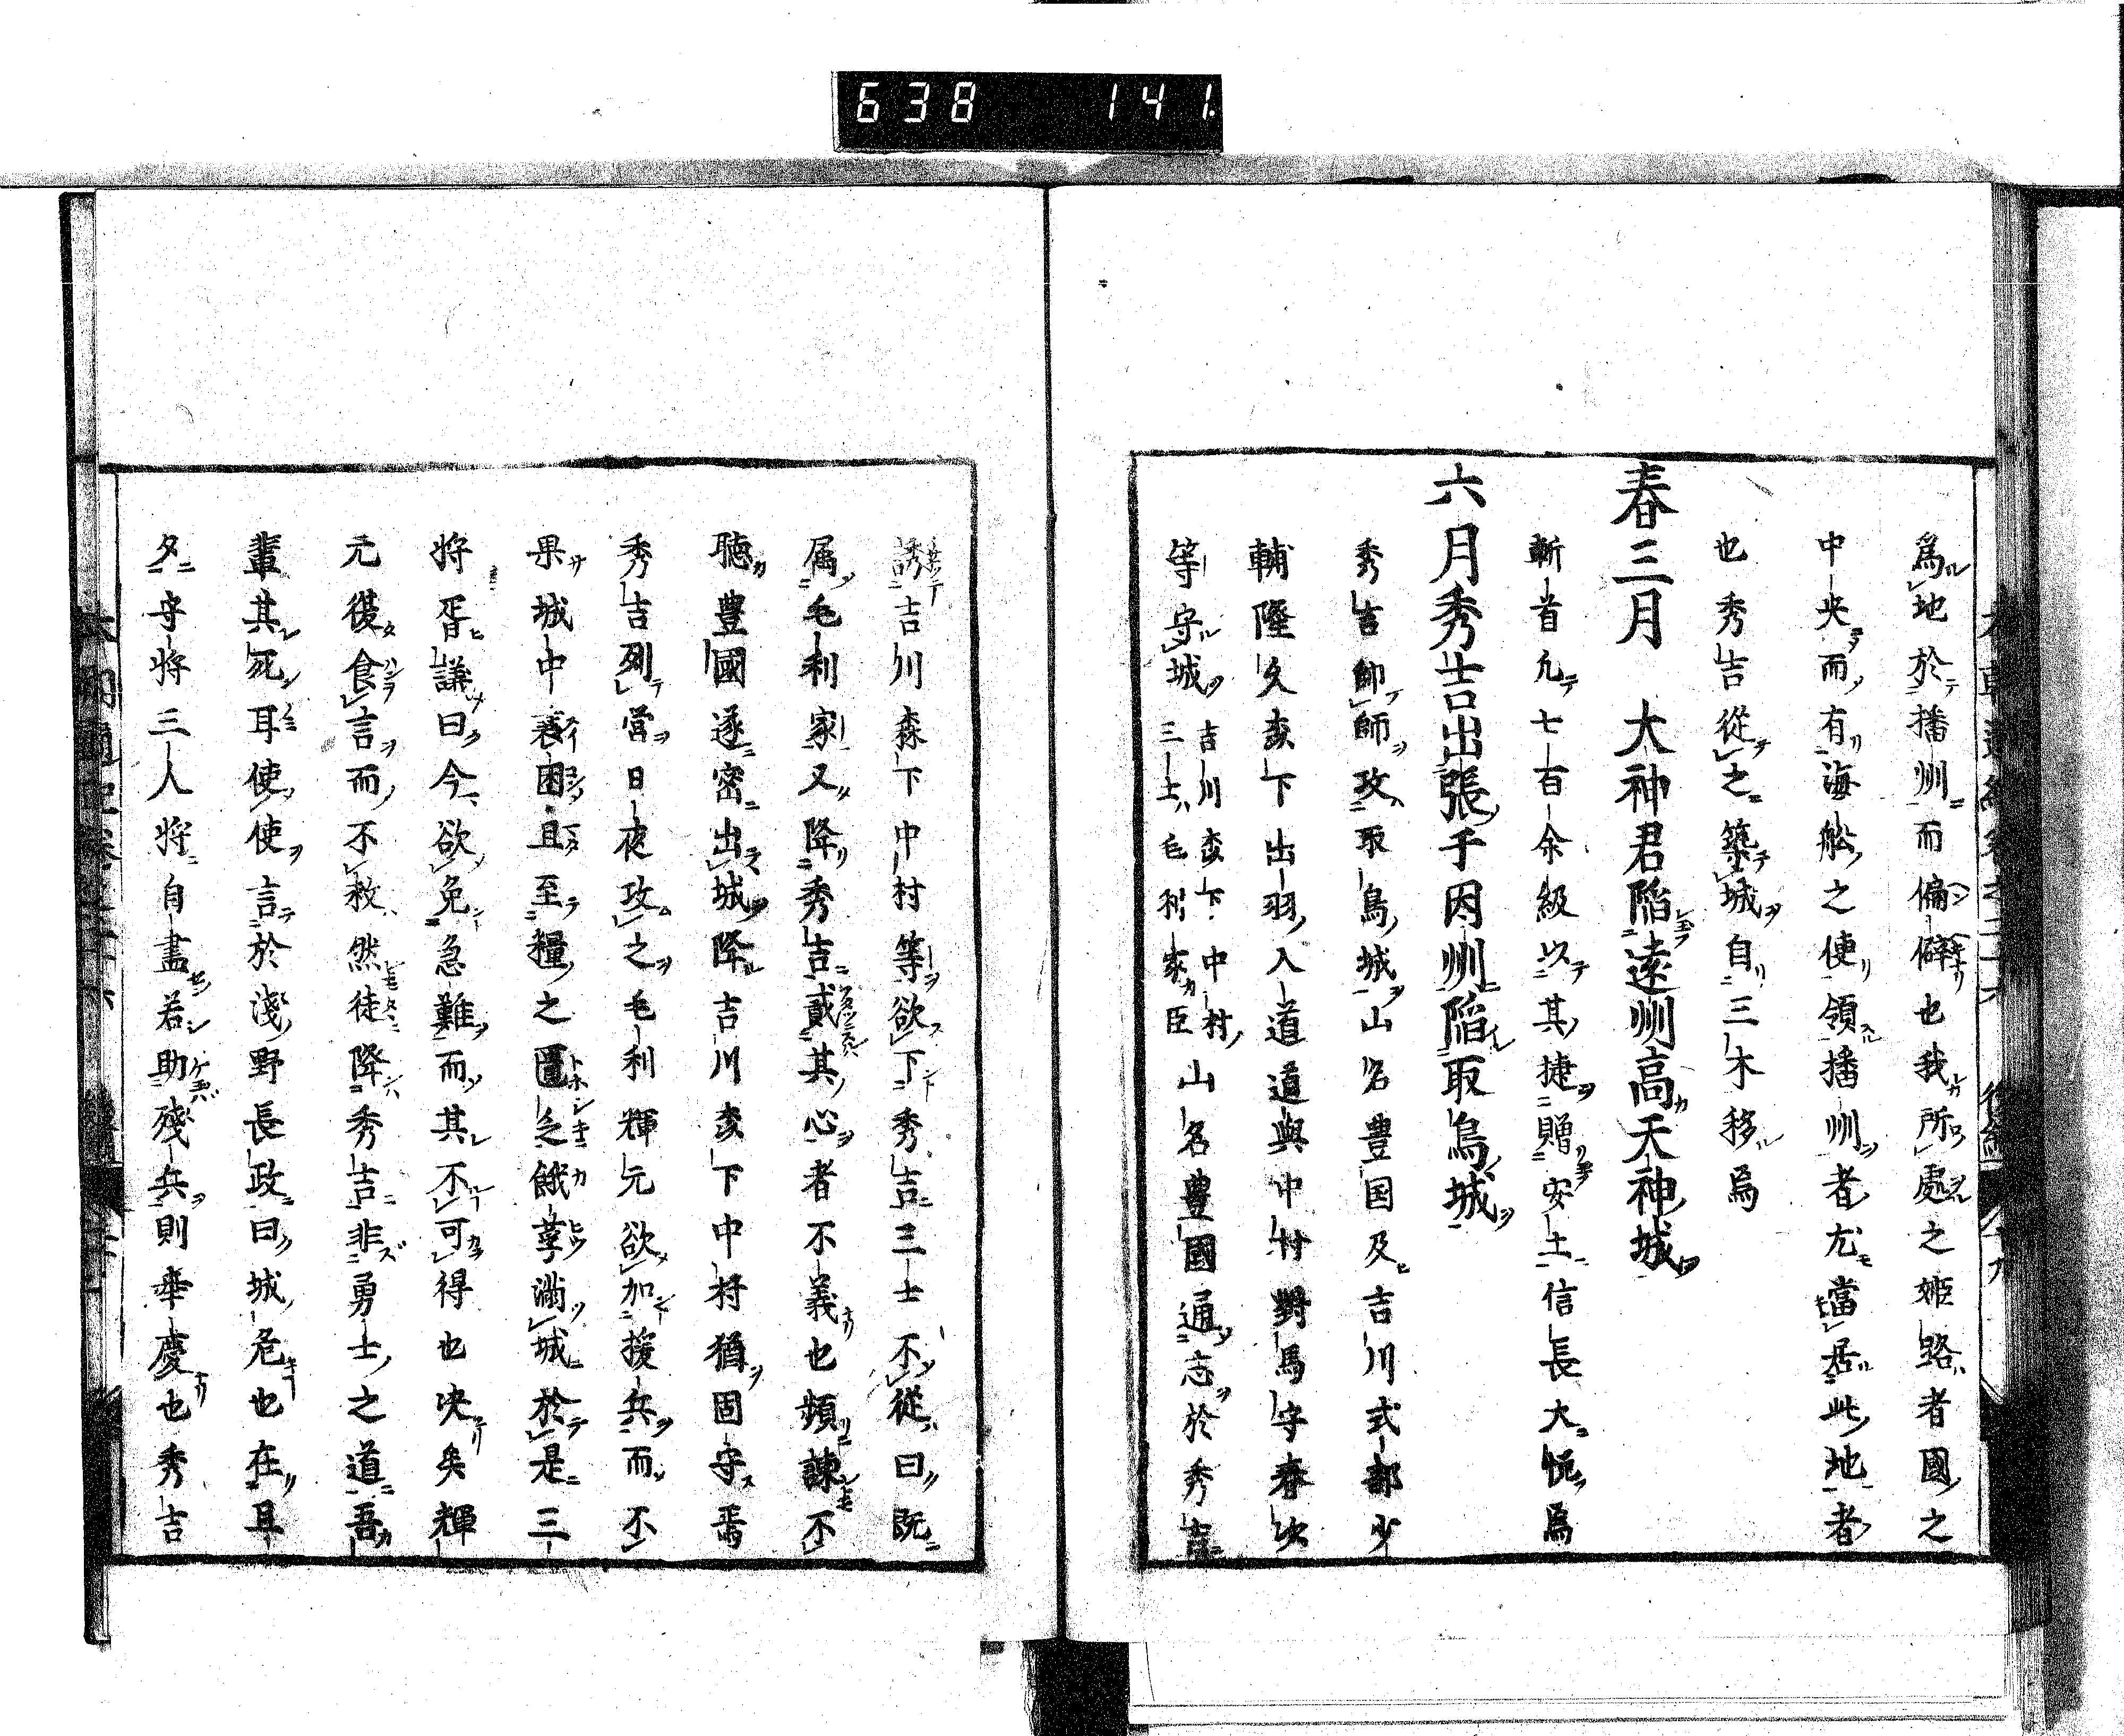 638 141
為地於播州而偏僻也我所處之姫路者國之
中央而有海舩之便領播州者尤當居此地者
也秀吉從之築城自三木移焉
春三月 大神君陷遠州髙天神城
斬首九七百余級以其捷贈安土信長大悦焉
六月秀吉出張于因州陷取鳥城
秀吉帥師攻取鳥城山名豊国及吉川式部少
輔隆久森下出羽入道道與中村對馬守春次
等守城
吉川森下中村
三士毛利家臣
山名豊國通志於秀吉
誘吉川森下中村等欲下秀吉三士不從曰既
属毛利家又降秀吉貳其心者不義也頻諫不
聴豊國遂密出城降吉川森下中村猶固守焉
秀吉列營日夜攻之毛利輝元欲加援兵而不
果城中衰困且至糧之匱乏餓莩滿城於是三
将胥議曰今欲免急難而其不可得也决矣輝
元復食言而不救然徒降秀吉非勇士之道吾
輩其死耳使使言於淺野長政曰城危也在旦
夕守将三人将自盡若助殘兵則幸慶也秀吉